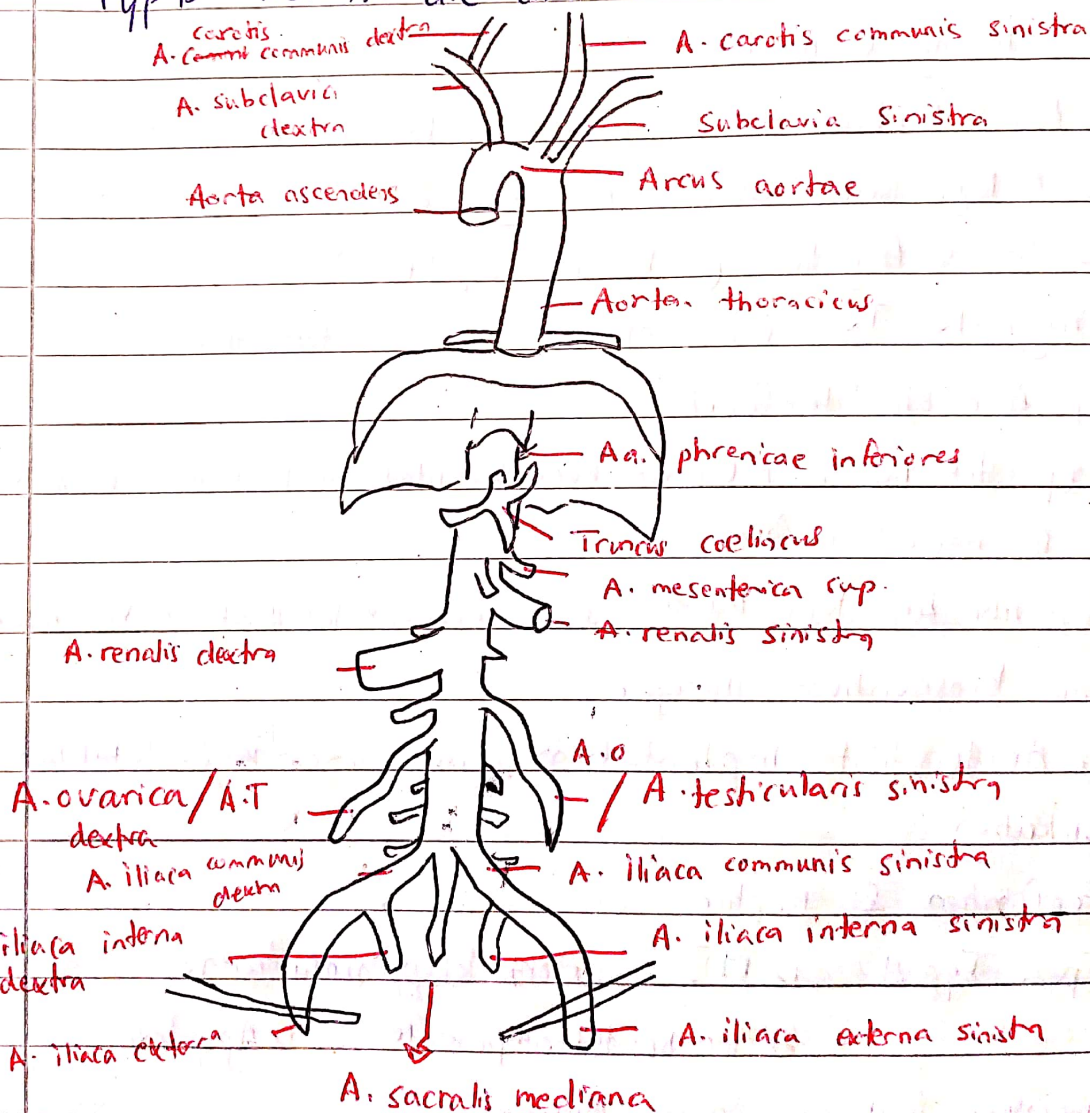 carotis.
A. communis dextra
A. carotis communis sinistra
A. subclavia
dextra
Subclavia sinistra
Aorta ascendens
Arcus aortae
Aorta thoracicus
Aa. phrenicae inferiores
Truncus coeliacus
A. mesenterica sup.
A. renalis sinistra
A. renalis dextra
A.O
A. ovarica/A.T
dextra
/ A. testicularis sinistra
A. iliaca communis
dextra
A. iliaca communis sinistra
iliaca interna
dextra
A. iliaca interna sinistra
A. iliaca externa
A. iliaca externa sinistra
A. sacralis mediana